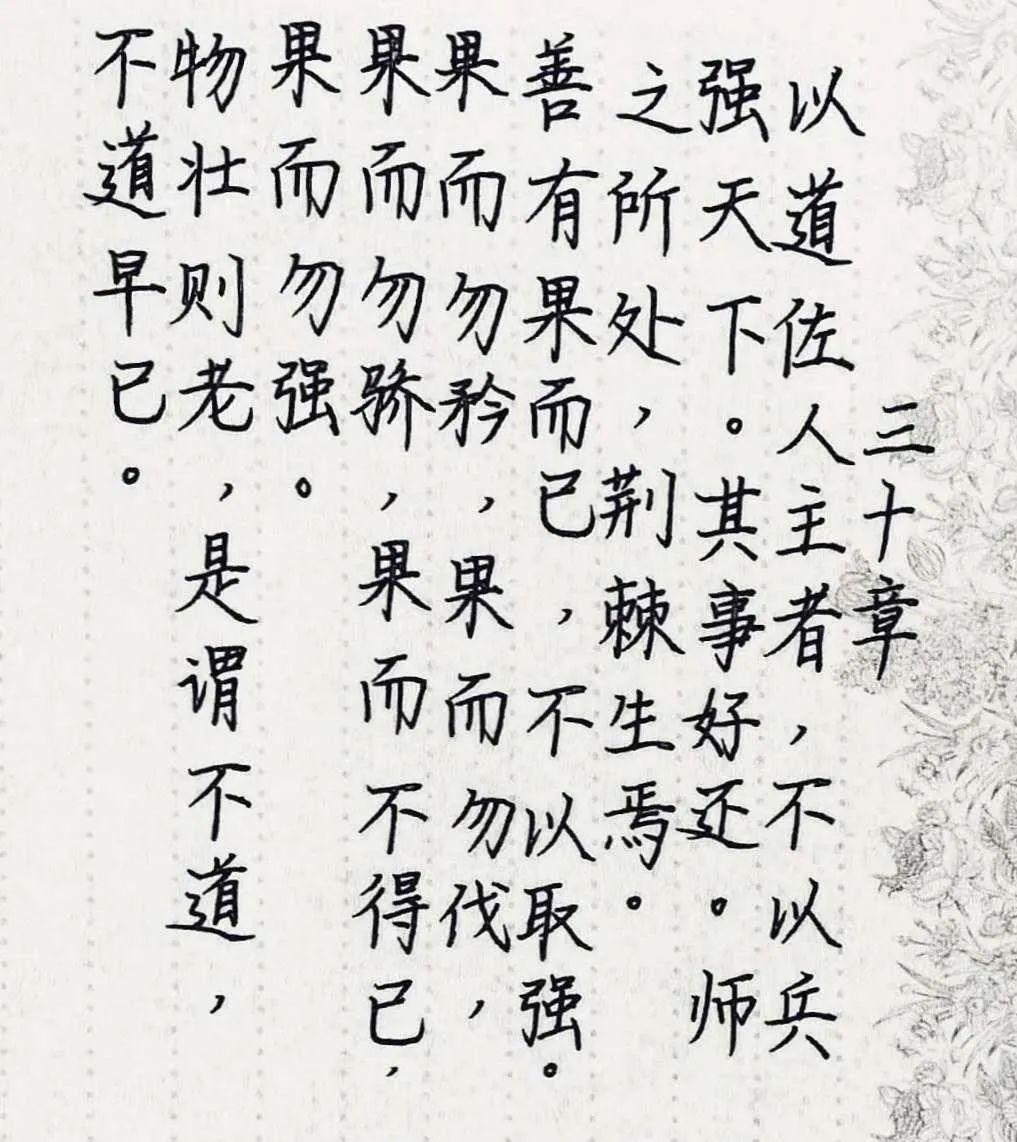 三十章
以道佐人主者，不以兵
强天下。其事好还。师
之所处，荆棘生焉。
善有果而已，不以取强。
果而勿矜，果而勿伐，
果而勿骄，果而不得已，
果而勿强。
物壮则老，是谓不道，
不道早已。